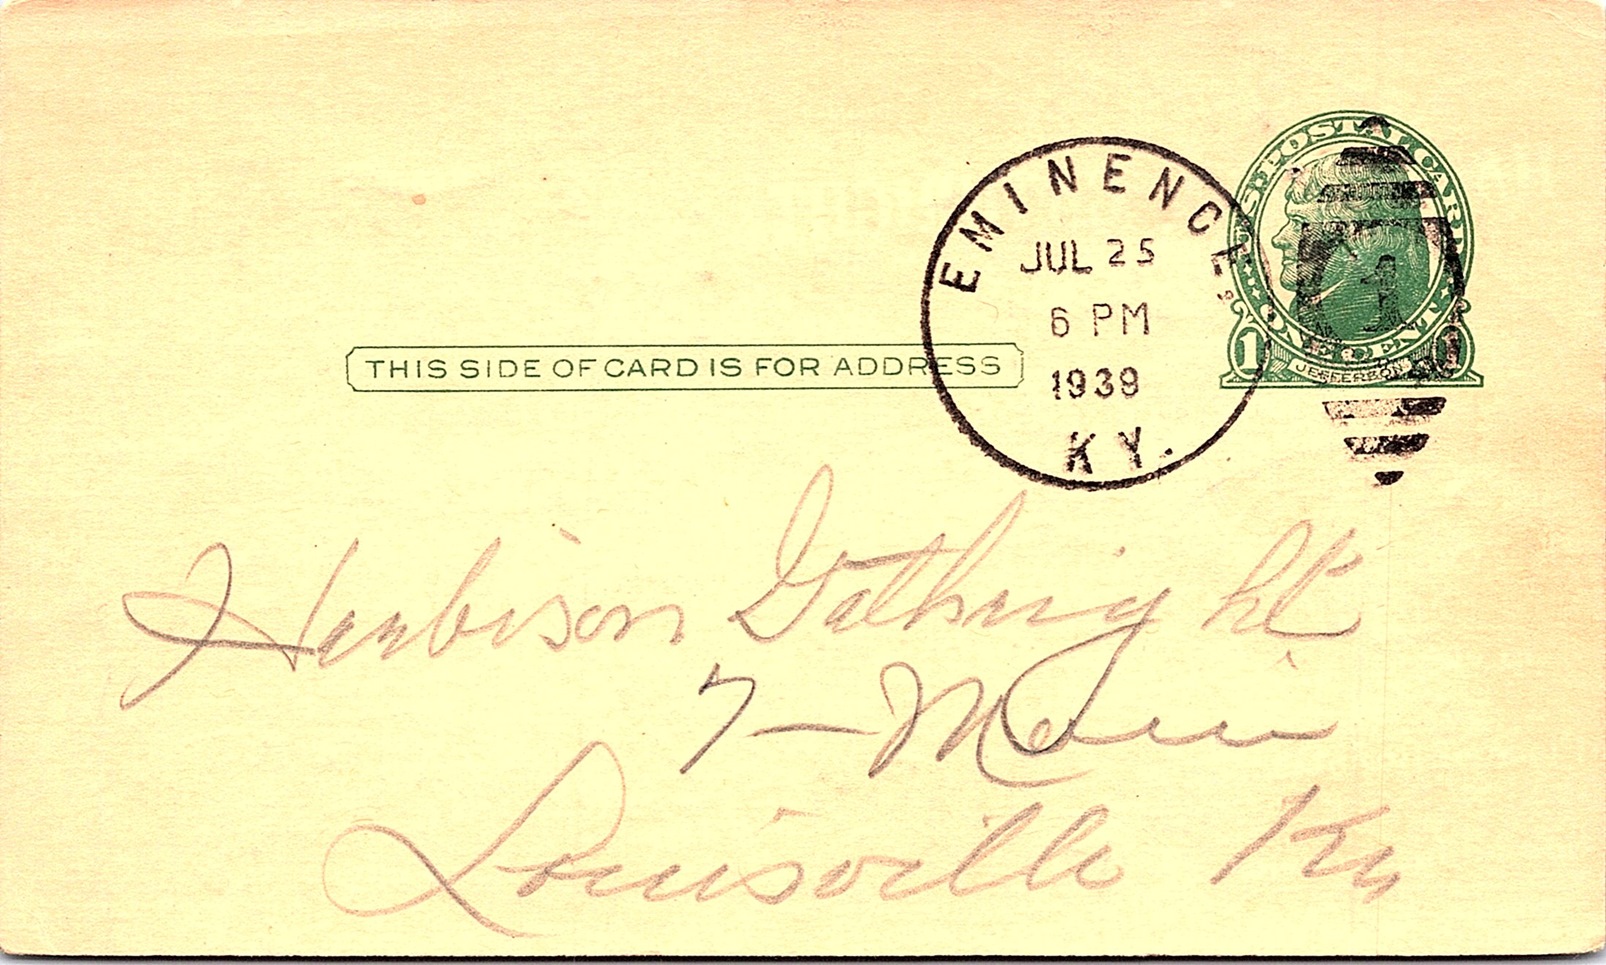 U.S. POSTAL CARD
EMINENCE
JUL 25
6 PM
1939
KY.
1
1 ONE CENT 1
JEFFERSON
THIS SIDE OF CARD IS FOR ADDRESS
Harbison Gathright
7 - Main
Louisville Ky